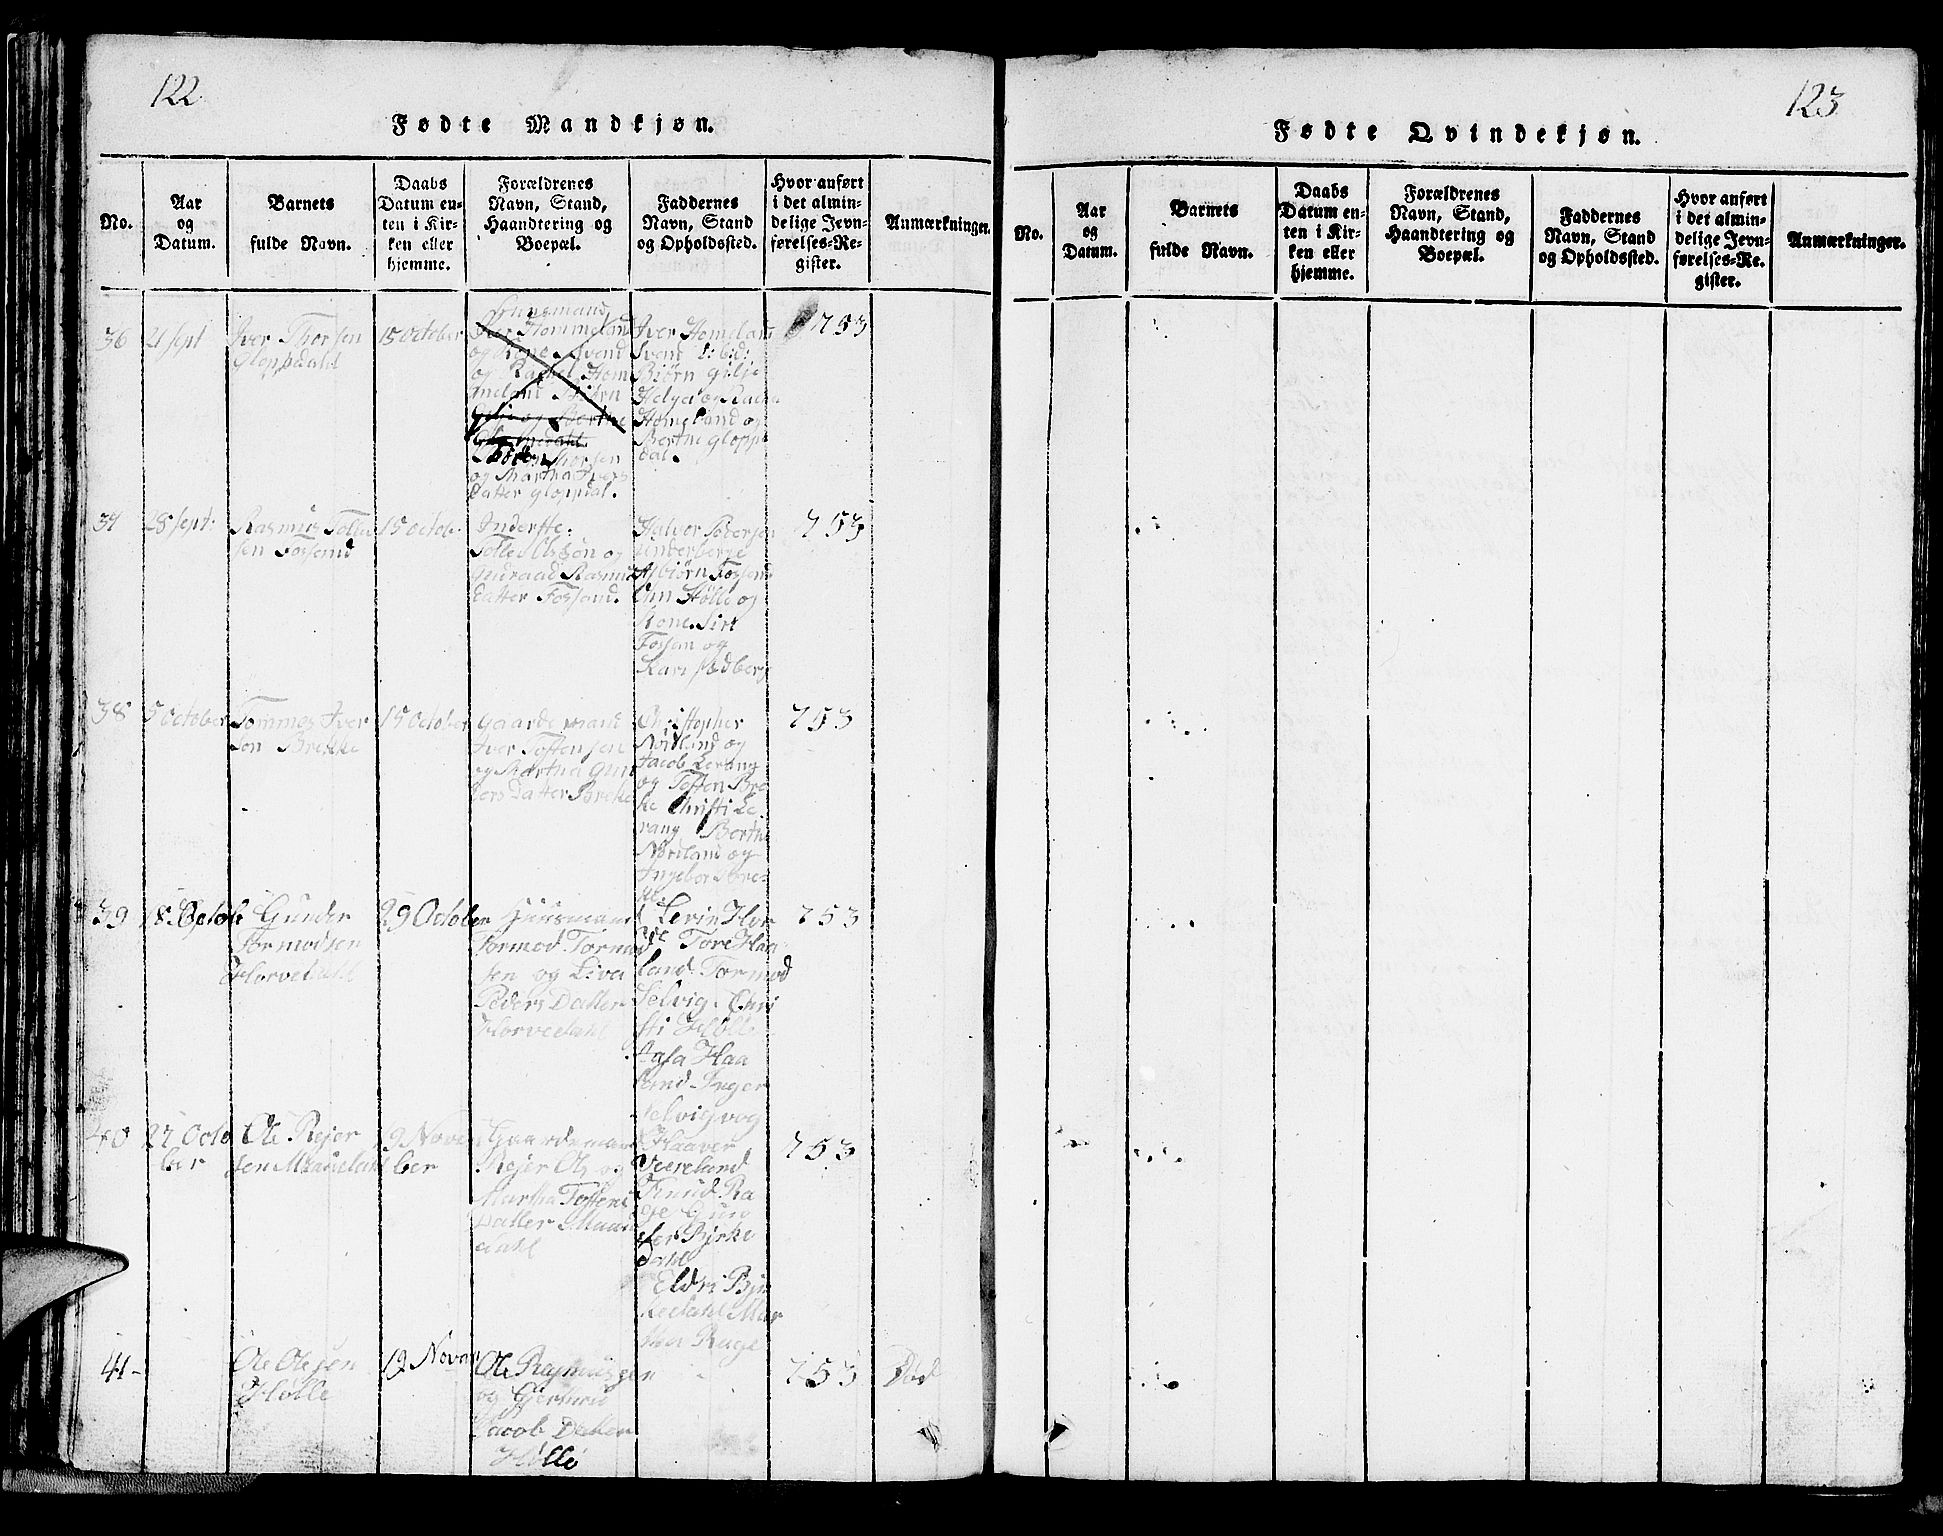 122
Fødte Mandkjøn.
No.
Aar
og
Datum.
Barnets
fulde Navn.
Daabs
Datum en-
ten i Kir-
ken eller
hjemme.
Forældrenes
Navn, Stand,
Haandtering og
Boepæl.
Faddernes
Navn, Stand
og Opholdssted.
Hvor anført
i det almin-
delige Jevn-
førelses-Re-
gister.
Anmærkninger.
36
21 sept
Iver Thorsen
Gloppdahl
15 October
Huusmand
Iver Hommeland
og Kone Svend
og Rachel Hom
meland Biörn
Gilie og Berthe
Gloppedahl
Thorsen
og Martha Ivers
datter gloppdal.
Iver Homeland
Svend i: b: d:
Biørn gilie
Helge og
Homeland og
Berthe glopp
dal.
753
37
28 sept:
Rasmus Tolle
sen Fossand
15 octob.
Inderste:
Tolle Olsøn og
Gudraad Rasmus
datter Fossand.
Halvor Pedersen
Underberge
Asbiørn Fossand
Ann Hølle og
Kone. Siri
Fossan og
Kari Sædberg
753
38
5 October
Tommes Iver
son Brekke
15 October
Gaardemand
Iver Tostensen
og Martha Gun
ders Datter Breke
Christopher
Nordland og
Jacob Lerang
og Tosten Bre
ke Christi Le
rang Berthe
Norland og
Ingebor Bre-
ke.
753
39
18. Octob
Gunder
Tormodsen
Horvedahl
29 October
Huusmand
Tormod Tormod
sen og Liva
Peders Datter
Horvedahl
Levin Hor
de Tore Haa
land Tormod
Selvig. Chri
sti Hølle
Aasa Haa
land Inger
Selvig og
753
40
27 Octo
ber
Ole Rejer
sen Maaedahl
19 Novem
ber
Gaardemand
Rejer Ols og
Martha Tostens
Datter Maae
dahl
Haaver
Veereland
Knud Ra
ge Gun
der Bjrke
dahl
Eldri Bjr
kedahl Mar
tha Rage
753
41-
Ole Olesen
Hølle
19 Novem
Ole Rasmussen
og Gjertrud
Jacob Datter
Hølle
753
Død
123
Fødte Qvindekjøn.
No.
Aar
og
Datum.
Barnets
fulde Navn.
Daabs
Datum en-
ten i Kir-
ken eller
hjemme.
Forældrenes
Navn, Stand,
Haandtering og
Boepæl.
Faddernes
Navn, Stand
og Opholdssted.
Hvor anført
i det almin-
delige Jevn-
førelses-Re-
gister.
Anmærkninger.